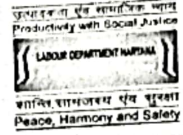 उत्पादकता एवं सामाजिक न्याय
Productivity with Social Justice
LABOUR DEPARTMENT HARYANA
शान्ति, सामंजस्य एंव सुरक्षा
Peace, Harmony and Safety